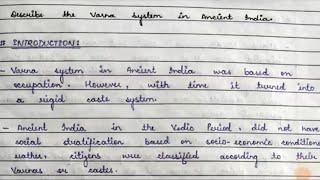 Describe the Varna System in Ancient India.
# INTRODUCTION:
- Varna system in Ancient India was based on
occupation. However, with time it turned into
a rigid caste system.
- Ancient India in the Vedic Period, did not have
social stratification based on socio-economic condition
rather, citizens were classified according to their
Varnas or castes.